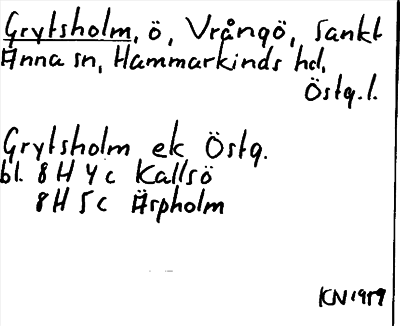 Grytsholm, ö, Vrångö, Sankt
Anna sn, Hammarkinds hd,
Östg.l.
Grytsholm ek Östg.
bl. 8H 4c Kallsö
8H 5c Äspholm